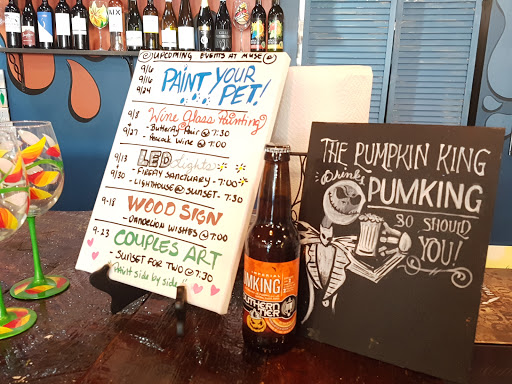 UPCOMING EVENTS AT MUSE
9/6
9/16
9/24
PAINT YOUR PET!
9/8 Wine Glass Painting
- Butterfly Pair @ 7:30
9/27 - Peacock Wine @ 7:00
9/13 LED Lights
- FIREFLY SANCTUARY - 7:00
9/30 - LIGHTHOUSE @ SUNSET - 7:30
9-18 WOOD SIGN
- DANDELION WISHES @ 7:00
9-23 COUPLES ART
- SUNSET FOR TWO @ 7:30
side by side
THE PUMPKIN KING
Drinks
PUMKING
SO SHOULD
YOU!
IMPERIAL
UMKING
SOUTHERN
TIER